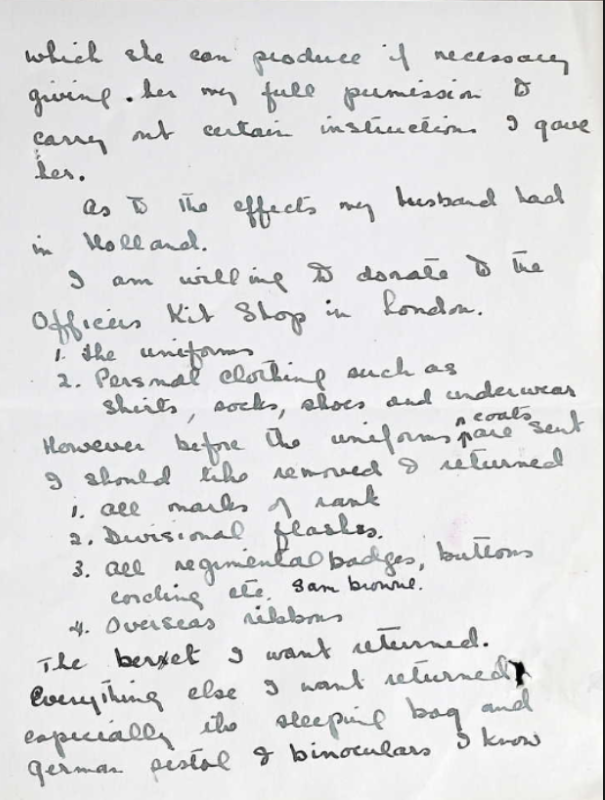 which she can produce if necessary
giving . her my full permission to
carry out certain instructions I gave
her.
As to the effects my husband had
in Holland.
I am willing to donate to the
Officers Kit Shop in London.
1. The uniforms
2. Personal clothing such as
shirts, socks, shoes and underwear
However before the uniforms & coats are sent
I should like removed & returned
1. all marks of rank
2. Divisional flashes.
3. all regimental badges, buttons
cording etc. Sam browne.
4. Overseas ribbons
The beret I want returned.
Everything else I want returned
especially the sleeping bag and
German pistol & binoculars I know